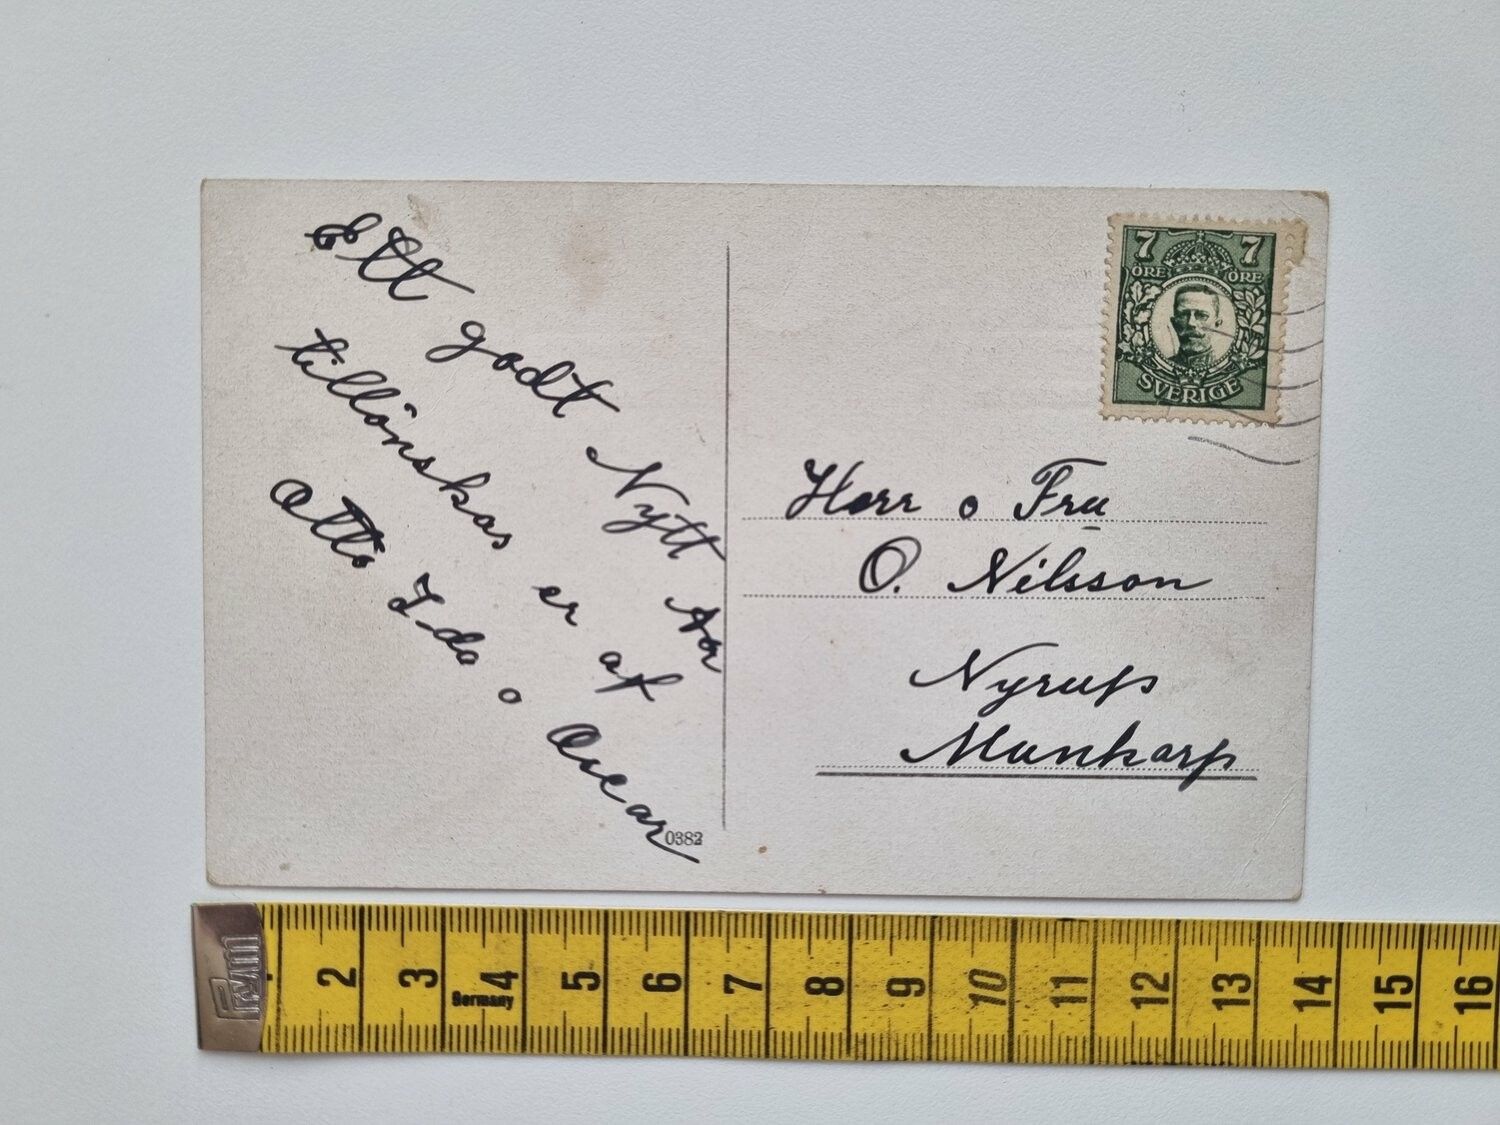 Ett godt Nytt År
tillönskas er af
Otto Ida o Oscar
0382
7 7
ÖRE ÖRE
SVERIGE
Herr o Fru
O. Nilsson
Nyrup
Munkarp
Prym
Germany
2 3 4 5 6 7 8 9 10 11 12 13 14 15 16